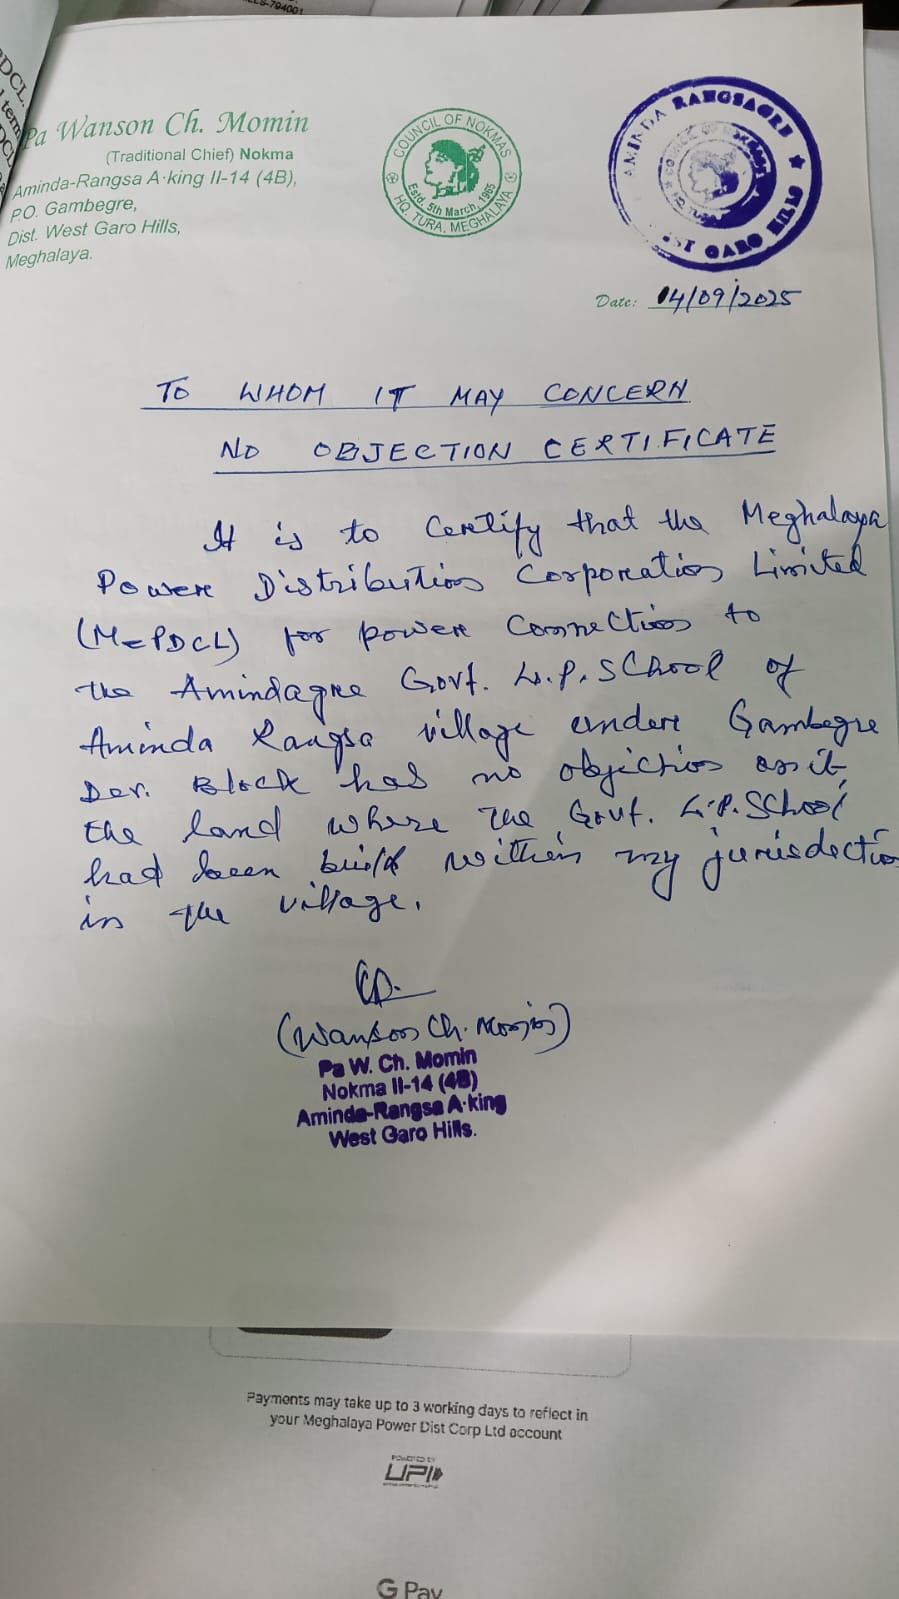 LLS-794001
PDCL.
Pa Wanson Ch. Momin
(Traditional Chief) Nokma
Aminda-Rangsa A·king II-14 (4B),
P.O. Gambegre,
Dist. West Garo Hills,
Meghalaya.
COUNCIL OF NOKMAS
Estd. 5th March, 1965
HQ. TURA, MEGHALAYA
AMINDA RANGSAGRE
WEST GARO HILLS
Date: 04/09/2025
TO WHOM IT MAY CONCERN
NO OBJECTION CERTIFICATE
It is to certify that the Meghalaya
Power Distribution Corporation Limited
(MePDCL) for power connection to
the Amindagre Govt. L.P. School of
Aminda Rangsa village under Gambegre
Dev. Block has no objection as it
the land where the Govt. L.P. School
had been built within my jurisdiction
in the village.
(Wanson Ch. Momin)
Pa W. Ch. Momin
Nokma II-14 (4B)
Aminda-Rangsa A·king
West Garo Hills.
Payments may take up to 3 working days to reflect in
your Meghalaya Power Dist Corp Ltd account
POWERED BY
UPI
G Pay